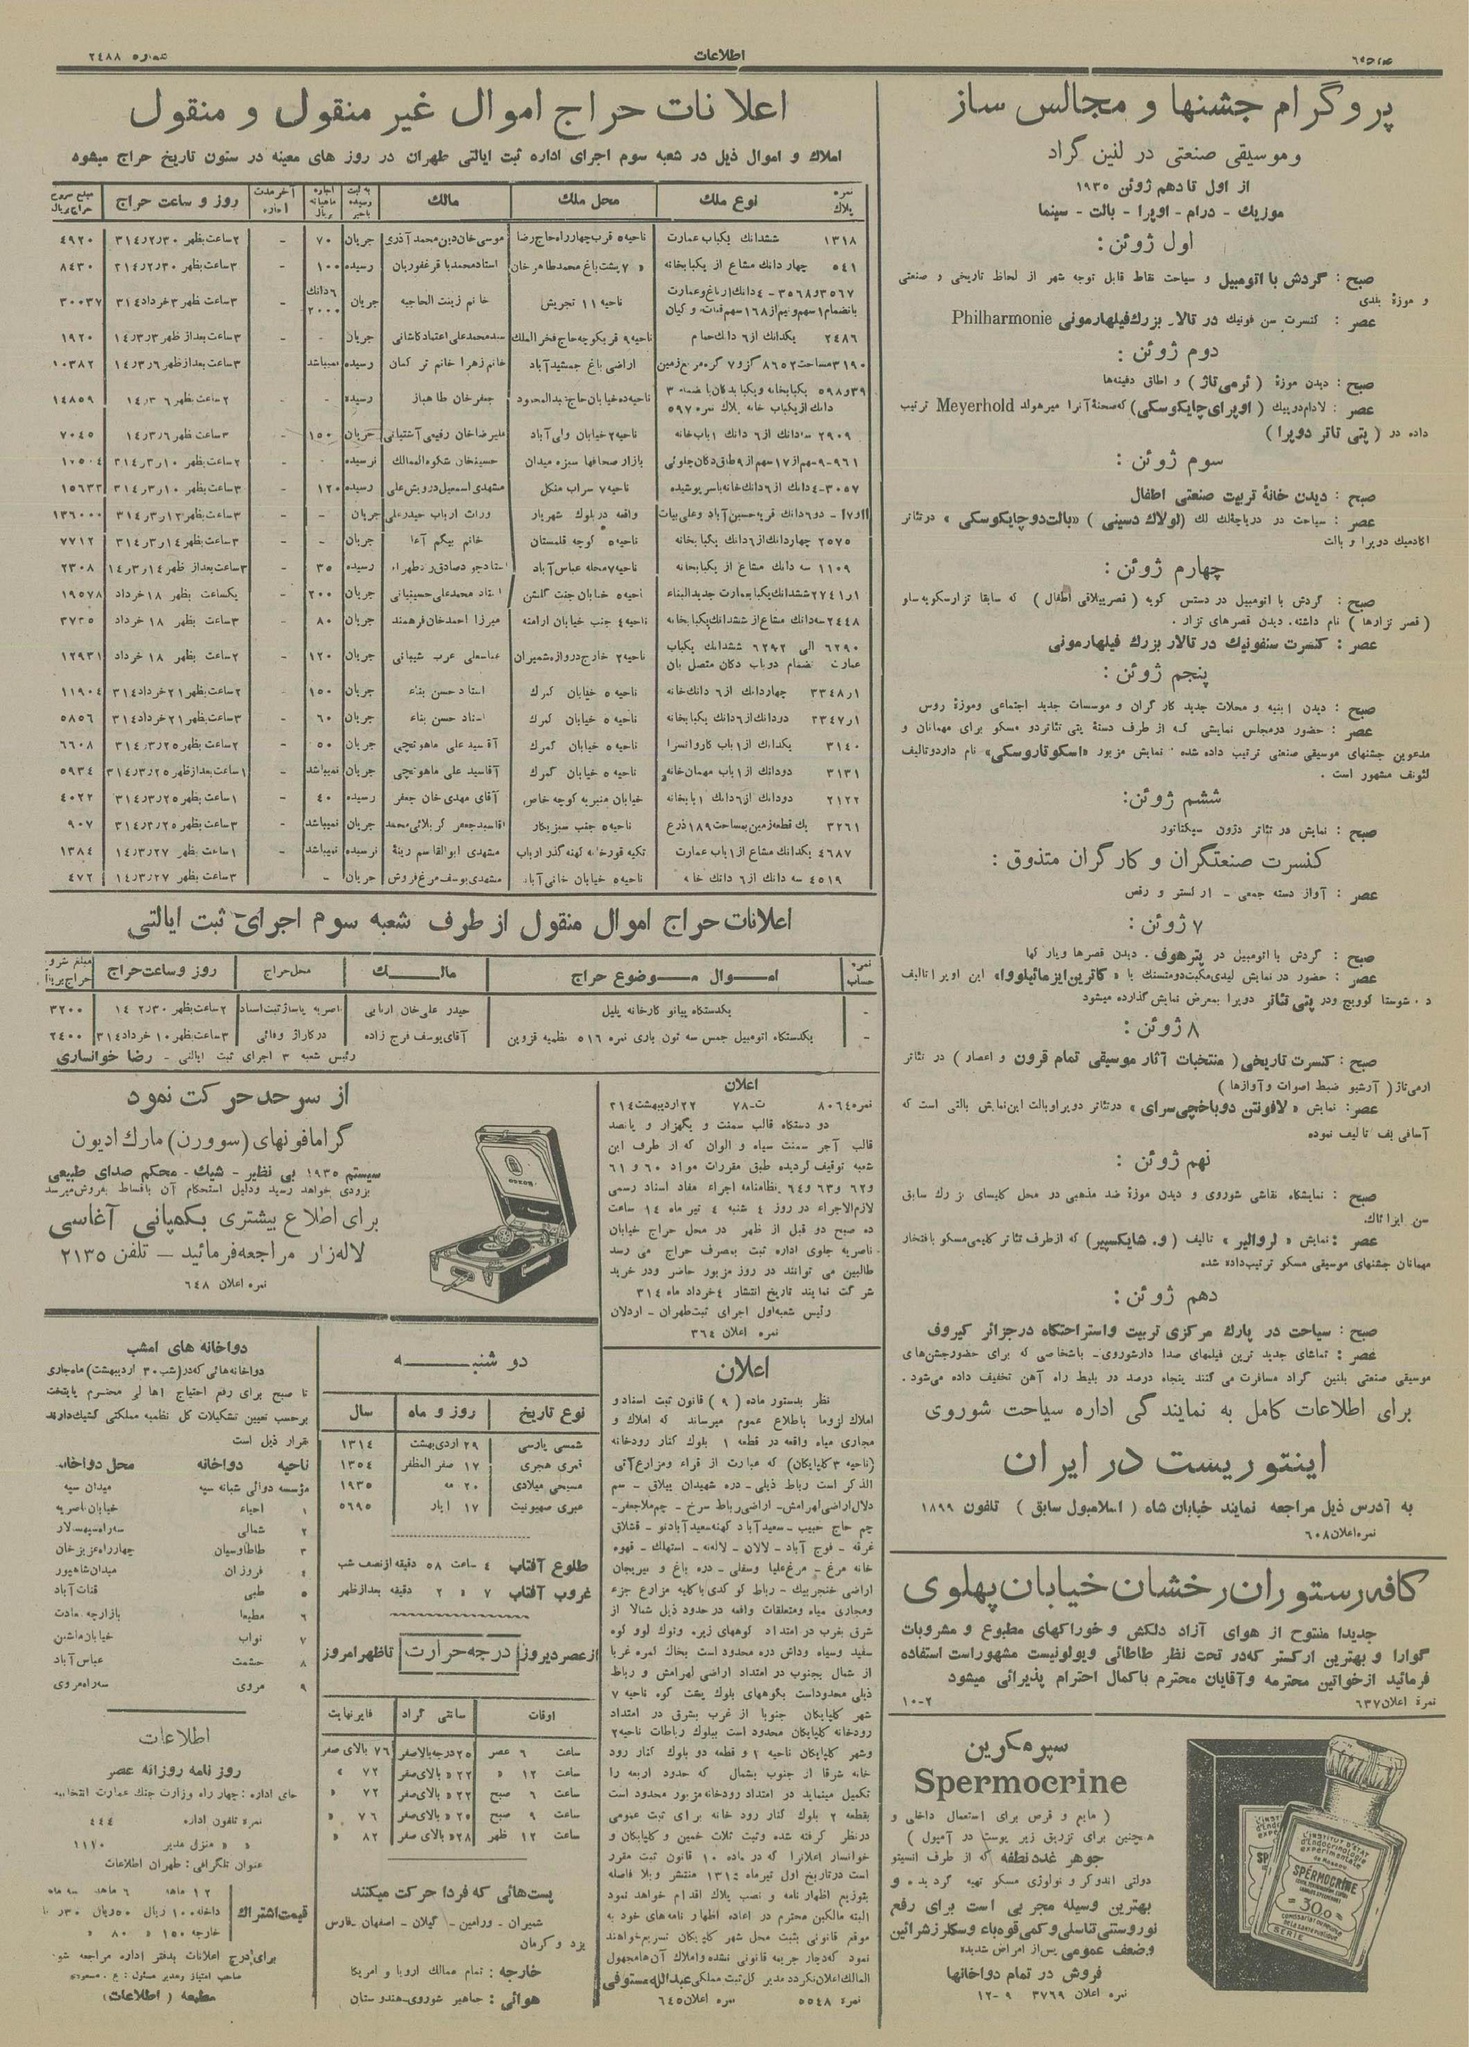 صفحه ٦
اطلاعات
شماره ٢٤٨٨
پروگرام جشنها و مجالس ساز
وموسیقی صنعتی در لنین گراد
از اول تا دهم ژوئن ١٩٣٥
موزیك - درام - اوپرا - بالت - سینما
اول ژوئن :
صبح : گردش با اتومبیل و سیاحت نقاط قابل توجه شهر از لحاظ تاریخی و صنعتی
و موزهٔ بلدی
عصر : کنسرت سن فونیك در تالار بزرك فیلهارمونی Philharmonie
دوم ژوئن :
صبح : دیدن موزهٔ ( ئرمی تاژ ) و اطاق دفینه‌ها
عصر : لادام دوپیك ( اوپرای چایکوسکی ) که صحنهٔ آنرا میرهولد Meyerhold ترتیب
داده در ( پتی تاتر دوپرا )
سوم ژوئن :
صبح : دیدن خانهٔ تربیت صنعتی اطفال
عصر : سیاحت در دریاچهٔ لك (لولاك دسینی ) «بالت دو چایکوسکی» در تئاتر
آکادمیك دوپرا و بالت
چهارم ژوئن :
صبح : گردش با اتومبیل در دتسی کویه ( قصر ییلاقی اطفال ) که سابقا تزارسکویه سلو
( قصر تزارها ) نام داشته . دیدن قصرهای تزار .
عصر : کنسرت سنفونیك در تالار بزرك فیلهارمونی
پنجم ژوئن :
صبح : دیدن ابنیه و محلات جدید کارگران و موسسات جدید اجتماعی وموزهٔ روس
عصر : حضور در مجلس نمایشی که از طرف دستهٔ پتی تئاتر دو مسکو برای مهمانان و
مدعوین جشنهای موسیقی صنعتی ترتیب داده شده . نمایش مزبور «اسکوتاروسکی» نام دارد وتالیف
لئونف مشهور است .
ششم ژوئن :
صبح : نمایش در تئاتر دژون سپکتاتور
کنسرت صنعتگران و کارگران متذوق :
عصر : آواز دسته جمعی - ارکستر و رقص
٧ ژوئن :
صبح : گردش با اتومبیل در پترهوف . دیدن قصرها وپارکها
عصر : حضور در نمایش لیدی مکبت دومتسنك یا « کاترین ایزمائیلووا» این اوپرا تالیف
د . شوستا کوویچ ودر پتی تئاتر دوپرا بمعرض نمایش گذارده میشود
٨ ژوئن :
صبح : کنسرت تاریخی ( منتخبات آثار موسیقی تمام قرون و اعصار ) در تئاتر
ارمی تاژ ( آرشیو ضبط اصوات و آوازها )
عصر : نمایش « لافونتن دوباخچی سرای » در تئاتر دوپرا وبالت این نمایش بالتی است که
آسافی یف تالیف نموده
نهم ژوئن :
صبح : نمایشگاه نقاشی شوروی و دیدن موزهٔ ضد مذهبی در محل کلیسای بزرك سابق
سن ایزائاك
عصر : نمایش « لروالیر » تالیف ( و . شایکسپیر ) که از طرف تئاتر کلیمی مسکو بافتخار
مهمانان جشنهای موسیقی مسکو ترتیب داده شده
دهم ژوئن :
صبح : سیاحت در پارك مرکزی تربیت واستراحتگاه در جزائر کیروف
عصر : تماشای جدید ترین فیلمهای صدا دار شوروی - باشخاصی که برای حضور جشن‌های
موسیقی صنعتی بلنین گراد مسافرت می کنند پنجاه درصد در بلیط راه آهن تخفیف داده می‌شود .
برای اطلاعات کامل به نمایندگی اداره سیاحت شوروی
اینتوریست در ایران
به آدرس ذیل مراجعه نمایند خیابان شاه ( اسلامبول سابق ) تلفون ١٨٩٩
نمره اعلان ٦٠٨
کافه رستوران رخشان خیابان پهلوی
جدیدا مفتوح از هوای آزاد دلکش و خوراکهای مطبوع و مشروبات
گوارا و بهترین ارکستر که در تحت نظر طاطائی ویولونیست مشهور است استفاده
فرمائید از خواتین محترمه و آقایان محترم با کمال احترام پذیرائی میشود
نمرهٔ اعلان ٦٣٧
١٠-٢
سپرمکرین
Spermocrine
( مایع و قرص برای استعمال داخلی و
همچنین برای تزریق زیر پوست در آمپول )
جوهر غدد نطفه که از طرف انستیتو
دولتی اندوکر و نولوژی مسکو تهیه گردیده و
بهترین وسیله مجربی است برای رفع
وضعف عمومی پس از امراض شدیده
فروش در تمام دواخانها
نمره اعلان ٣٧٦٩ ٩-١٢
L'INSTITUT D'ÉTAT
d'Endocrinologie
expérimentale
de Moscou
SPERMOCRINE
30,0
SÉRIE
اعلانات حراج اموال غیر منقول و منقول
املاك و اموال ذیل در شعبه سوم اجرای اداره ثبت ایالتی طهران در روز های معینه در ستون تاریخ حراج میشود
نمره پلاك | نوع ملك | محل ملك | مالك | به ثبت رسیده یا خیر | اجاره ماهیانه ریال | آخر مدت اجاره | روز و ساعت حراج | مبلغ شروع حراج بریال
١٣١٨ ششدانك یکباب عمارت | ناحیه ٥ قرب چهار راه حاج رضا | موسی خان دین محمد آذری | جریان | ٧٠ | - | ٢ ساعت بظهر ٣١٤/٢/٣٠ | ٤٩٢٠
٥٤١ چهار دانك مشاع از یکبابخانه | » ٧ پشت باغ محمد طاهر خان | استاد محمد باقر غفوریان | رسیده | ١٠٠ | - | ٣ ساعت بظهر ٣١٤/٢/٣٠ | ٨٤٣٠
٣٥٦٧ و ٣٥٦٨ - ٤ دانك از باغ وعمارت | ناحیه ١١ تجریش | خانم زینت الحاجیه | جریان | ٦ دانك ٢٠٠٠ | - | ٣ ساعت بظهر ٣ خرداد ٣١٤ | ٣٠٠٣٧
٢٤٨٦ یکدانك از ٦ دانك حمام | ناحیه ٩ قریکوچه حاج فخر الملك | سید محمد علی اعتماد کاشانی | جریان | - | - | ٣ ساعت بعد از ظهر ١٤/٣/٣ | ١٩٢٠
٣١٩٠ مساحت ٨٦٥٢ گز و ٧ گره مربع زمین | اراضی باغ جمشید آباد | خانم زهرا خانم تر کمان | رسیده | نمیباشد | - | ٣ ساعت بعد از ظهر ١٤/٣/٦ | ١٠٣٨٢
٥٩٨ و ٣٩ یکبابخانه و یکباب دکان بانضمام ٣ دانك از یکباب خانه پلاك نمره ٥٩٧ | جعفر خان طاهباز | رسیده | - | - | ٢ ساعت بظهر ١٤/٣/٦ | ١٤٨٥٩
٢٩٠٩ سه دانك از ٦ دانك ١ باب خانه | ناحیه ٢ خیابان ولی آباد | علیرضا خان رفیعی آشتیانی | جریان | ١٥٠ | - | ٣ ساعت بظهر ١٤/٣/٦ | ٧٠٤٥
٩٦١-٩ سهم از ١٧ سهم از ٩ طاق دکان جلوئی | بازار صحافها سبزه میدان | حسینخان شکوه الممالك | نرسیده | - | - | ٢ ساعت بظهر ٣١٤/٣/١٠ | ١٠٥٠٤
٣٠٥٧-٤ دانك از ٦ دانك خانه با سر پوشیده | ناحیه ٧ سراب منگل | مشهدی اسمعیل درویش علی | رسیده | ١٢٠ | - | ٣ ساعت بظهر ٣١٤/٣/١٠ | ١٥٦٣٣
دو ٦ دانك قریه حسین آباد و علی بیات | واقعه در بلوك شهریار | وراث ارباب حیدر علی | جریان | - | - | ٣ ساعت بظهر ٣١٤/٣/١٢ | ١٣٦٠٠٠
٢٥٧٥ چهار دانك از ٦ دانك یکبابخانه | ناحیه ٥ کوچه قلمستان | خانم بیگم آغا | جریان | - | - | ٣ ساعت بظهر ٣١٤/٣/١٤ | ٧٧١٢
١١٠٩ سه دانك مشاع از یکبابخانه | ناحیه ٧ محله عباس آباد | رسیده | ٣٥ | - | ٣ ساعت بعد از ظهر ١٤/٣/١٤ | ٢٣٠٨
٢٧٤١/١ ششدانك یکباب عمارت جدید البناء | ناحیه ٥ خیابان جنت گلشن | استاد محمد علی حسینیائی | جریان | ٢٠٠ | - | یکساعت بظهر ١٨ خرداد | ١٩٥٧٨
٢٤٤٨ سه دانك مشاع از ششدانك یکبابخانه | ناحیه ٤ جنب خیابان ارامنه | میرزا احمد خان فرهمند | جریان | ٨٠ | - | ٣ ساعت بظهر ١٨ خرداد | ٣٧٣٥
٦٢٩٠ الی ٦٢٩٢ ششدانك یکباب عمارت بانضمام دو باب دکان متصل بان | ناحیه ٢ خارج دروازه شمیران | عباسعلی عرب شیبانی | جریان | ١٢٠ | - | ٢ ساعت بظهر ١٨ خرداد | ١٢٩٣١
٣٣٤٨/١ چهار دانك از ٦ دانك خانه | ناحیه ٥ خیابان گمرك | استاد حسن بناء | جریان | ١٥٠ | - | ٢ ساعت بظهر ٢١ خرداد ٣١٤ | ١١٩٠٤
٣٣٤٧/١ دو دانك از ٦ دانك یکبابخانه | ناحیه ٥ خیابان گمرك | استاد حسن بناء | جریان | ٦٠ | - | ٣ ساعت بظهر ٢١ خرداد ٣١٤ | ٥٨٥٦
٣١٤٠ یکدانك از ١ باب کاروانسرا | ناحیه ٥ خیابان گمرك | آقا سید علی ماهوتچی | جریان | ٥٠ | - | ٢ ساعت بظهر ٣١٤/٣/٢٥ | ٦٦٠٨
٣١٣١ دو دانك از ١ باب مهمان خانه | ناحیه ٥ خیابان گمرك | آقا سید علی ماهوتچی | جریان | نمیباشد | - | ١ ساعت بعد از ظهر ٣١٤/٣/٢٥ | ٥٩٣٤
٢١٢٢ دو دانك از ٦ دانك ١ بابخانه | خیابان منیریه کوچه خاص | آقای مهدی خان جعفر | رسیده | ٤٠ | - | ١ ساعت بظهر ٣١٤/٣/٢٥ | ٤٠٢٢
٣٢٦١ یك قطعه زمین بمساحت ١٨٩ ذرع | ناحیه ٥ جنب سبزیکار | آقا سید جعفر کربلائی محمد | جریان | نمیباشد | - | ٣ ساعت بظهر ٣١٤/٣/٢٥ | ٩٠٧
٤٦٨٧ یکدانك مشاع از ١ باب عمارت | تکیه قورخانه کهنه گذر ارباب | مشهدی ابوالقاسم رینهٔ | نرسیده | نمیباشد | - | ١ ساعت بظهر ١٤/٣/٢٧ | ١٣٨٤
٤٥١٩ سه دانك از ٦ دانك خانه | ناحیه ٥ خیابان خانی آباد | مشهدی یوسف مرغ فروش | جریان | - | - | ٣ ساعت بظهر ١٤/٣/٢٧ | ٤٧٢
اعلانات حراج اموال منقول از طرف شعبه سوم اجرای ثبت ایالتی
نمره حساب | اموال موضوع حراج | مالك | محل حراج | روز و ساعت حراج | مبلغ شروع حراج بریال
- | یکدستگاه پیانو کارخانه پلیل | حیدر علی خان اربابی | ناصریه پاساژ ثبت اسناد | ٢ ساعت بظهر ١٤/٢/٣٠ | ٣٢٠٠
- | یکدستگاه اتومبیل جمس سه تون باری نمره ٥١٦ نظمیه قزوین | آقای یوسف فرج زاده | در گاراژ وفائی | ٣ ساعت بظهر ١٠ خرداد ٣١٤ | ٢٤٠٠
رئیس شعبه ٣ اجرای ثبت ایالتی - رضا خوانساری
اعلان
نمره ٨٠٦٤ ت-٧٨ ٢٢ اردیبهشت ٣١٤
دو دستگاه قالب سمنت و یکهزار و پانصد
قالب آجر سمنت سیاه و الوان که از طرف این
شعبه توقیف گردیده طبق مقررات مواد ٦٠ و ٦١
و ٦٢ و ٦٣ و ٦٤ نظامنامه اجراء مفاد اسناد رسمی
لازم الاجراء در روز ٤ شنبه ٤ تیر ماه ١٤ ساعت
ده صبح دو قبل از ظهر در محل حراج خیابان
ناصریه جلوی اداره ثبت بمصرف حراج می رسد
طالبین می توانند در روز مزبور حاضر ودر خرید
شرکت نمایند تاریخ انتشار ٤ خرداد ماه ٣١٤
رئیس شعبه اول اجرای ثبت طهران - اردلان
نمره اعلان ٣٦٤
اعلان
نظر بدستور ماده ( ٩ ) قانون ثبت اسناد و
املاك لزوما باطلاع عموم میرساند که املاك و
مجاری میاه واقعه در قطعه ١ بلوك کنار رودخانه
(ناحیه ٣ گلپایگان) که عبارت از قراء ومزارع آتی
الذکر است رباط ذیلی - دره شهیدان ییلاق - سم
دلال اراضی لهرامش - اراضی رباط سرخ - چم ملاجعفر -
چم حاج حبیب - سعیدآباد کهنه سعیدآباد نو - قشلاق
غرقه - فوج آباد - لالان - لاله - استهلك - قهوه
خانه مرغ - مرغ علیا وسفلی - دره باغ و میریجان
اراضی خنجربیك - رباط گو کدی با کلیه مزارع جزء
ومجاری میاه ومتعلقات واقعه در حدود ذیل شمالا از
شرق بغرب در امتداد کوههای زیره ونوك لوو کوه
سفید وسیاه وداش دره محدود است بخاك لمره غربا
از شمال بجنوب در امتداد اراضی لهرامش و رباط
ذیلی محدود است بکوههای بلوك پشت کوه ناحیه ٧
شهر گلپایگان جنوبا از غرب بشرق در امتداد
رودخانه گلپایگان محدود است ببلوك رباطات ناحیه ٢
وشهر گلپایگان ناحیه ١ و قطعه دو بلوك کنار رود
خانه شرقا از جنوب بشمال که حدود اربعه را
تکمیل مینماید در امتداد رودخانه مزبور محدود است
بقطعه ٢ بلوك کنار رود خانه برای ثبت عمومی
در نظر گرفته شده وثبت ثلاث خمین و گلپایگان و
خوانسار اعلانرا که در ماده ١٠ قانون ثبت مقرر
است در تاریخ اول تیر ماه ١٣١٤ منتشر وبلا فاصله
بتوزیع اظهار نامه و نصب پلاك اقدام خواهد نمود
البته مالکین محترم در اعاده اظهار نامه‌های خود به
موقع قانونی بثبت محل شهر گلپایگان تسریع خواهند
نمود که دچار جریمه قانونی نشده واملاك آن ها مجهول
المالك اعلان نگردد مدیر کل ثبت مملکتی عبدالله مستوفی
نمره ٥٥٤٨ نمره اعلان ٦٤٥
از سرحد حرکت نمود
گرامافونهای (سوورن) مارك ادیون
سیستم ١٩٣٥ بی نظیر - شیك - محکم صدای طبیعی
بزودی خواهد رسید ودلیل استحکام آن باقساط بفروش میرسد
برای اطلاع بیشتری بکمپانی آغاسی
لاله‌زار مراجعه فرمائید - تلفن ٢١٣٥
نمره اعلان ٦٤٨
ODEON
دو شنبه
نوع تاریخ | روز و ماه | سال
شمسی پارسی | ٢٩ اردیبهشت | ١٣١٤
قمری هجری | ١٧ صفر المظفر | ١٣٥٤
مسیحی میلادی | ٢٠ مه | ١٩٣٥
عبری صهیونیت | ١٧ ایار | ٥٦٩٥
طلوع آفتاب ٤ ساعت ٥٨ دقیقه از نصف شب
غروب آفتاب ٧ » ٢ دقیقه بعد از ظهر
از عصر دیروز درجه حرارت تا ظهر امروز
اوقات | سانتی گراد | فارنهایت
ساعت ٦ عصر | ٢٥ درجه بالای صفر | ٧٦ بالای صفر
ساعت ١٢ » | ٢٢ » بالای صفر | ٧٢ »
ساعت ٦ صبح | ٢٢ » بالای صفر | ٧٢ »
ساعت ٩ صبح | ٢٥ » بالای صفر | ٧٦ »
ساعت ١٢ ظهر | ٢٨ » بالای صفر | ٨٢ »
پست‌هائی که فردا حرکت میکنند
شمیران - ورامین - گیلان - اصفهان - فارس
یزد و کرمان
خارجه : تمام ممالك اروپا و امریکا
هوائی : جماهیر شوروی - هندوستان
دواخانه های امشب
دواخانه هائی که در (شب ٣٠ اردیبهشت) ماه جاری
تا صبح برای رفع احتیاج اهالی محترم پایتخت
برحسب تعیین تشکیلات کل نظمیه مملکتی کشیك دارند
بقرار ذیل است
ناحیه دواخانه محل دواخانه
مؤسسه دوائی شبانه سپه میدان سپه
١ احیاء خیابان ناصریه
٢ شمالی سه راه سپهسالار
٣ طاطاوسیان چهار راه عزیز خان
٤ فروزان میدان شاهپور
٥ طبی قنات آباد
٦ بازارچه سعادت
٧ نواب خیابان ماشین
٨ حشمت عباس آباد
٩ مروی سه راه مروی
اطلاعات
روز نامه روزانه عصر
جای اداره : چهار راه وزارت جنك عمارت انتخابیه
نمره تلفون اداره ٤٤٤
» » منزل مدیر ١١٧٠
عنوان تلگرافی : طهران اطلاعات
قیمت اشتراك
١٢ ماهه ٦ ماهه سه ماهه
داخله ١٠٠ ریال ٥٠ ریال ٣٠ ریال
خارجه ١٥٠ » ٨٠ »
برای درج اعلانات بدفتر اداره مراجعه شود
صاحب امتیاز ومدیر مسئول : ع . مسعودی
مطبعه ( اطلاعات )